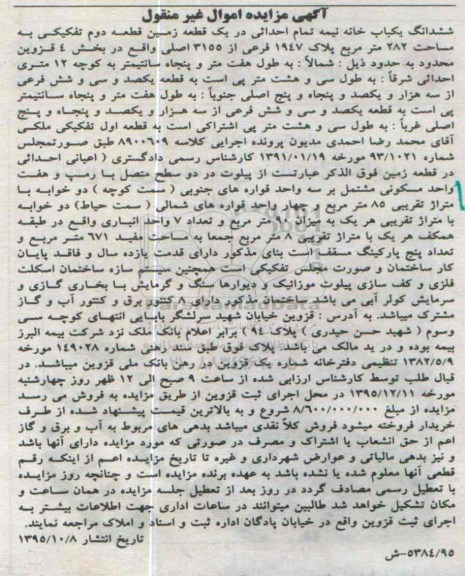 آگهی مزایده اموال غیر منقول
ششدانگ یکباب خانه نیمه تمام احداثی در یک قطعه زمین قطعه دوم تفکیکی به
مساحت ۲۸۲ متر مربع پلاک ۱۹۴۷ فرعی از ۳۱۵۵ اصلی واقع در بخش ۴ قزوین
محدود به حدود ذیل : شمالاً : به طول هفت متر و پنجاه سانتیمتر به کوچه ۱۲ متری
احداثی شرقاً : به طول سی و هشت متر پی است به قطعه یکصد و سی و شش فرعی
از سه هزار و یکصد و پنجاه و پنج اصلی جنوباً : به طول هفت متر و پنجاه سانتیمتر
پی است به قطعه یکصد و سی و شش فرعی از سه هزار و یکصد و پنجاه و پنج
اصلی غرباً : به طول سی و هشت متر پی اشتراکی است به قطعه اول تفکیکی ملکی
آقای محمد رضا احمدی مدیون پرونده اجرایی کلاسه ۸۹۰۰۶۰۹ طبق صورتمجلس
شماره ۹۳/۱۰۲۱ مورخه ۱۳۹۱/۰۱/۱۹ کارشناس رسمی دادگستری ( اعیانی احداثی
در قطعه زمین فوق الذکر عبارتست از پیلوت در دو سطح متصل با رمپ و هفت
واحد مسکونی مشتمل بر سه واحد قواره های جنوبی ( سمت کوچه ) دو خوابه با
متراژ تقریبی ۸۵ متر مربع و چهار واحد قواره های شمالی ( سمت حیاط) دو خوابه
با متراژ تقریبی هر یک به میزان ۹۰ متر مربع و تعداد ۷ واحد انباری واقع در طبقه
همکف هر یک با متراژ تقریبی ۸ متر مربع جمعا به مساحت مفید ۶۷۱ متر مربع و
تعداد پنج پارکینگ مسقف است بنای مذکور دارای قدمت یازده سال و فاقد پایان
کار ساختمان و صورت مجلس تفکیکی است همچنین سیستم سازه ساختمان اسکلت
فلزی و کف سازی پیلوت موزائیک و دیوارها سنگ و گرمایش با بخاری گازی و
سرمایش کولر آبی می باشد. ساختمان مذکور دارای ۸ کنتور برق و کنتور آب و گاز
مشترک میباشد. به آدرس : قزوین خیابان شهید سرلشگر بابایی انتهای کوچه سی
وسوم ( شهید حسن حیدری ) پلاک ۹۴ ) برابر اعلام بانک ملک نزد شرکت بیمه البرز
بیمه بوده و در ید مالک می باشد. پلاک فوق طبق سند رهنی شماره ۱۴۹۰۲۸ مورخه
۱۳۸۲/۵/۹ تنظیمی دفترخانه شماره یک قزوین در رهن بانک ملی قزوین میباشد. در
قبال طلب توسط کارشناس ارزیابی شده از ساعت ۹ صبح الی ۱۲ ظهر روز چهارشنبه
مورخه ۱۳۹۵/۱۲/۱۱ در محل اجرای ثبت قزوین از طریق مزایده به فروش می رسد
مزایده از مبلغ ۸/۶۰۰/۰۰۰/۰۰۰ شروع و به بالاترین قیمت پیشنهاد شده از طرف
خریدار فروخته میشود فروش کلاً نقدی میباشد بدهی های مربوط به آب و برق و گاز
اعم از حق انشعاب یا اشتراک و مصرف در صورتی که مورد مزایده دارای آنها باشد
و نیز بدهی مالیاتی و عوارض شهرداری و غیره تا تاریخ مزایده اعم از اینکه رقم
قطعی آنها معلوم شده یا نشده باشد به عهده برنده مزایده است و چنانچه روز مزایده
با تعطیل رسمی مصادف گردد در روز بعد از تعطیل جلسه مزایده در همان ساعت و
مکان تشکیل خواهد شد طالبین میتوانند در ساعات اداری جهت اطلاعات بیشتر به
اجرای ثبت قزوین واقع در خیابان پادگان اداره ثبت و اسناد و املاک مراجعه نمایند.
تاریخ انتشار ۱۳۹۵/۱۰/۸
۵۳۸۴/۹۵-ش